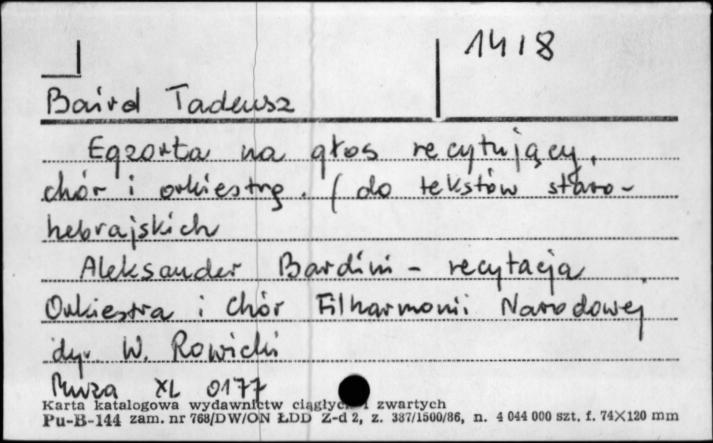 1418
Baird Tadeusz
Egzorta na głos recytujący,
chór i orkiestrę. (do tekstów staro-
hebrajskich
Aleksander Bardini - recytacja
Orkiestra i Chór Filharmonii Narodowej
dyr W. Rowicki
Muza XL 0177
Karta katalogowa wydawnictw ciągłych i zwartych
Pu-B-144 zam. nr 768/DW/ON ŁDD Z-d 2, z. 387/1500/86, n. 4 044 000 szt. f. 74×120 mm